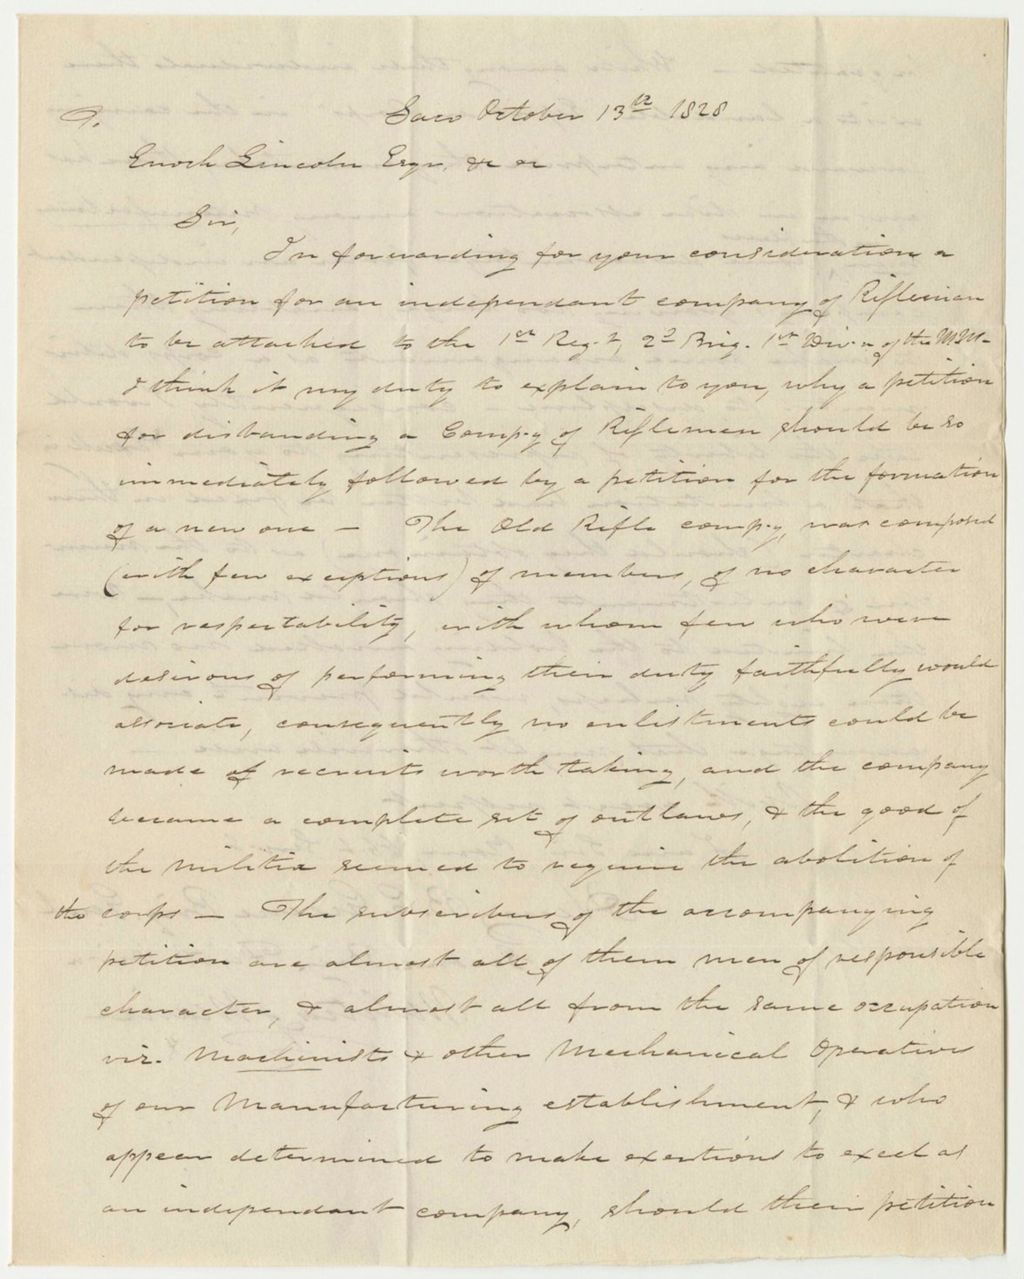 Saco October 13th 1828
Enoch Lincoln Esqr. &c &c
Sir,
In forwarding for your consideration a
petition for an independant company of Riflemen
to be attached to the 1st Reg.t, 2d Brig. 1st Div.n of the M M-
I think it my duty to explain to you, why a petition
for disbanding a Comp.y of Riflemen should be so
immediately followed by a petition for the formation
of a new one — The Old Rifle comp.y, was composed
(with few exceptions) of members, of no character
for respectability, with whom few who were
desirous of performing their duty faithfully would
associate, consequently no enlistments could be
made of recruits worth taking, and the company
became a complete set of outlaws, & the good of
the militia seemed to require the abolition of
the corps — The subscribers of the accompanying
petition are almost all of them men of responsible
character, & almost all from the same occupation
viz. Machinists & other Mechanical Operatives
of our Manufacturing establishment, & who
appear determined to make exertions to excel as
an independant company, should their petition